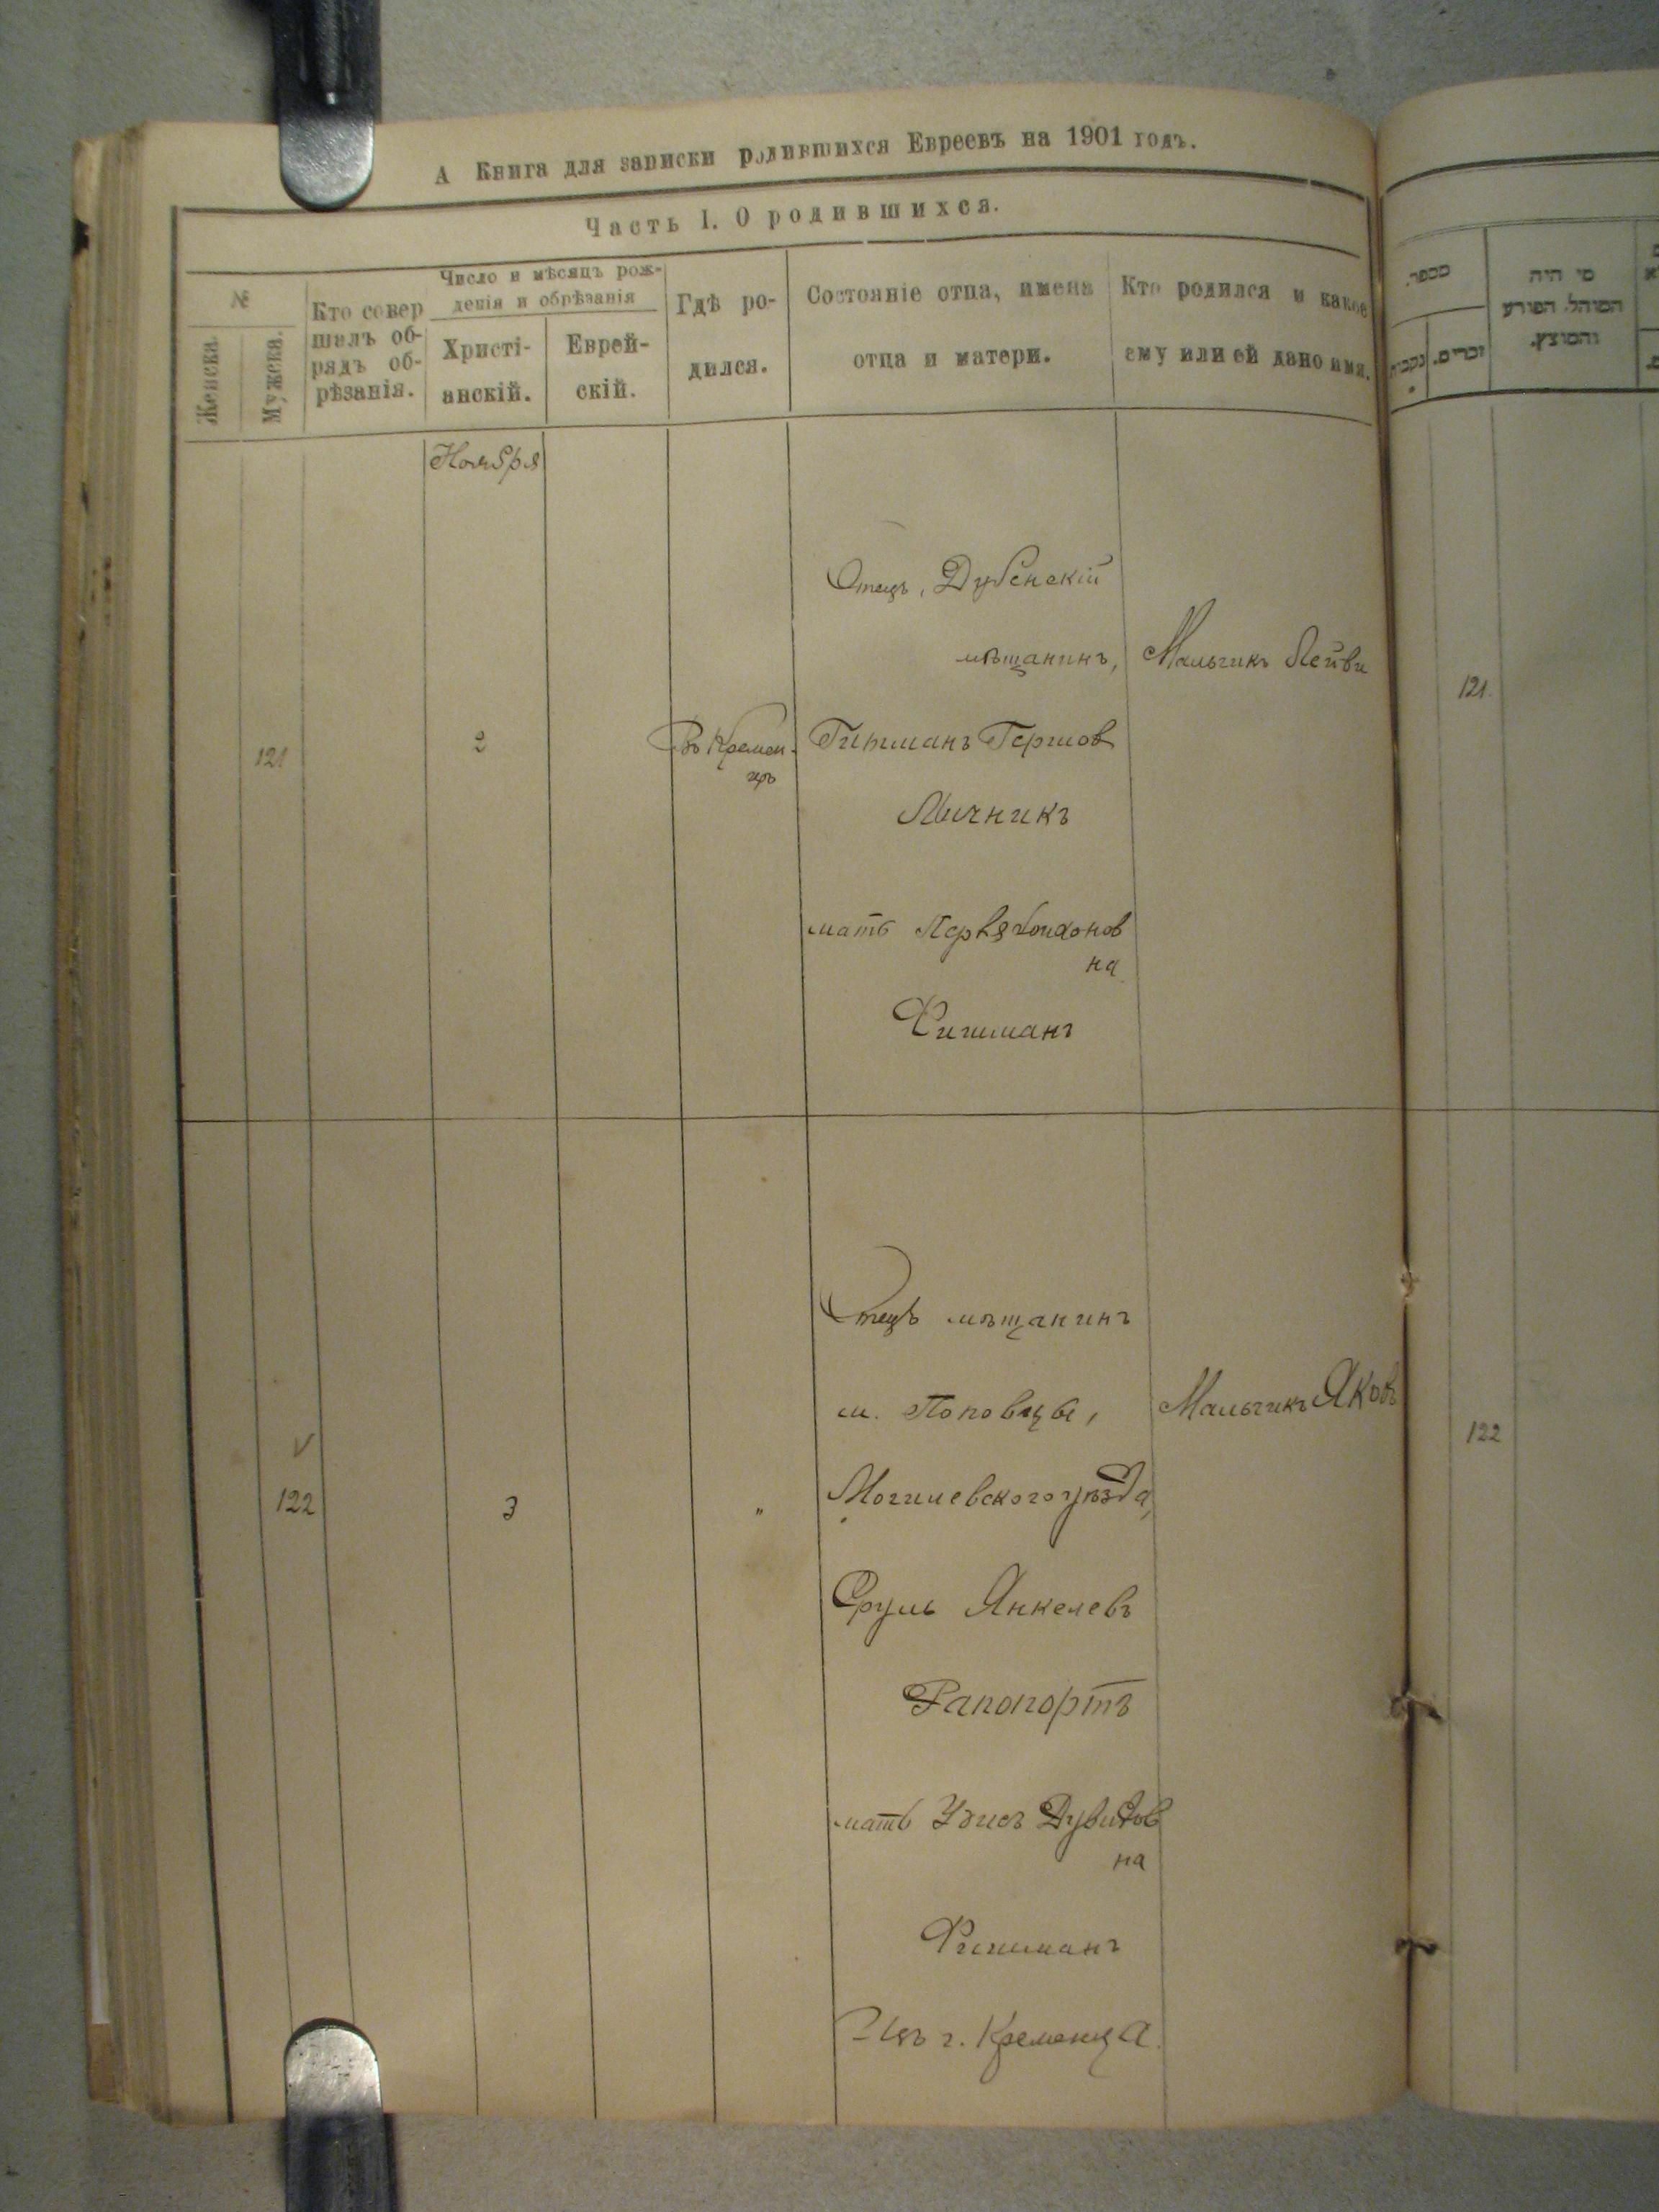 А Книга для записки родившихся Евреевъ на 1901 годъ.
Часть I. О родившихся.
№
Женска.
Мужска.
Кто совер
шалъ об-
рядъ об-
рѣзанія.
Число и мѣсяцъ рож-
денія и обрѣзанія
Христі-
анскій.
Еврей-
скій.
Гдѣ ро-
дился.
Состояніе отца, имена
отца и матери.
Кто родился и какое
ему или ей дано имя.
Ноября
121
2
Въ Кремен-
цѣ
Отецъ, Дубенскій
мѣщанинъ,
Гершов
Мичникъ
мать
на
Фишманъ
Мальчикъ Лейви
122
3
"
Отецъ мѣщанинъ
м. Поповцы,
Могилевскаго уѣзда,
Сруль Янкелевъ
Рапопортъ
мать Дувидов
на
Фишманъ
г. Кременца
Мальчикъ Яковъ
מספר.
נקבות
זכרים.
מי היה
המוהל, הפורע
והמוצץ.
121.
122